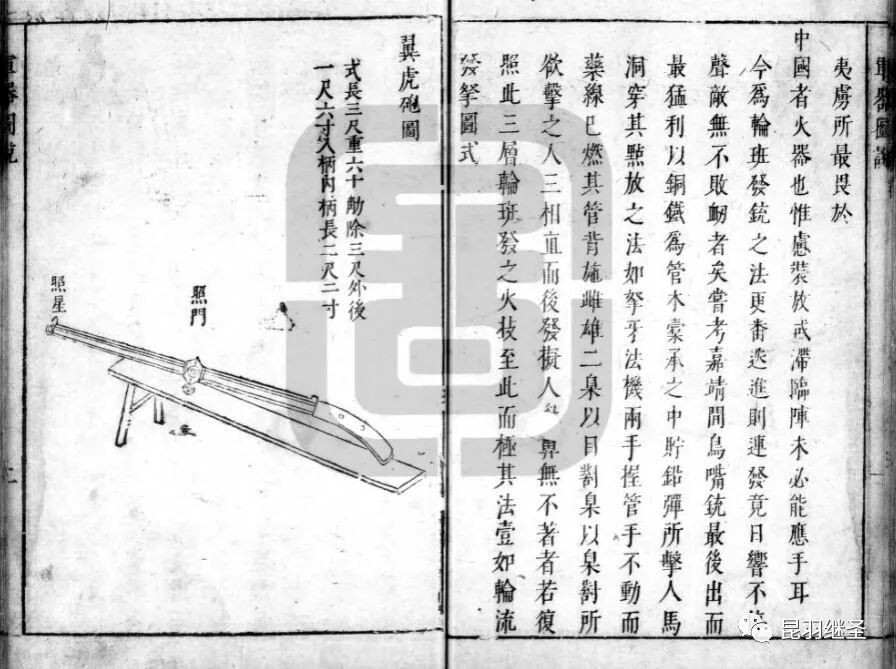 軍器圖說
夷虜所最畏於
中國者火器也惟慮裝放或滯臨陣未必能應手耳
今爲輪班發銃之法更番迭進則連發竟日響不
聲敵無不敗衂者矣嘗考嘉靖間鳥嘴銃最後出而
最猛利以銅鐵爲管木橐承之中貯鉛彈所擊人馬
洞穿其點放之法如弩牙法機兩手握管手不動而
藥線已燃其管背施雌雄二臬以目對臬以臬對所
欲擊之人三相直而後發擬人 鼻無不著者若復
照此三層輪班發之火技至此而極其法壹如輪流
發拏圖式
翼虎砲圖
式長三尺重六十觔除三尺外後
一尺六寸入柄內柄長二尺二寸
照門
照星
軍器圖說
昆羽继圣